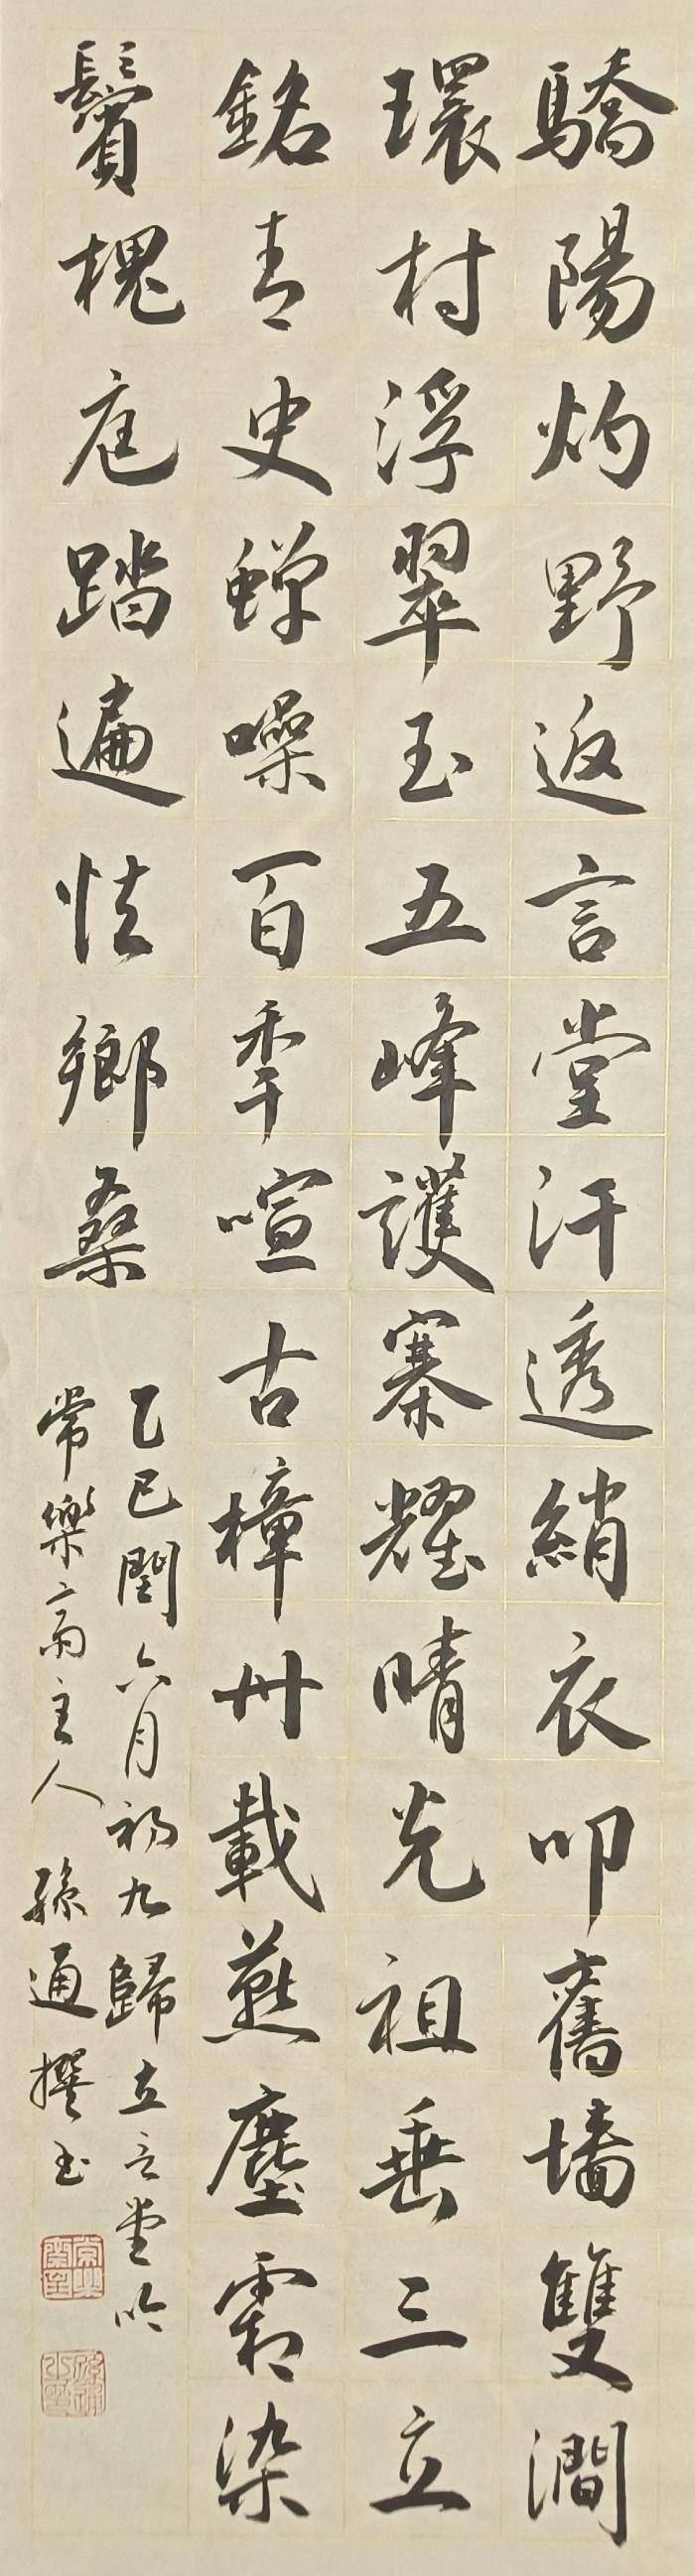 驕陽灼野返言堂汗透綃衣叩舊墻雙澗
環村浮翠玉五峰護寨耀晴光祖垂三立
銘青史蟬噪百秊喧古樟卅載燕塵霜染
鬢槐庭踏遍怯鄉桑
乙巳閏六月初九歸立言堂吟
常樂齋主人孫通撰書